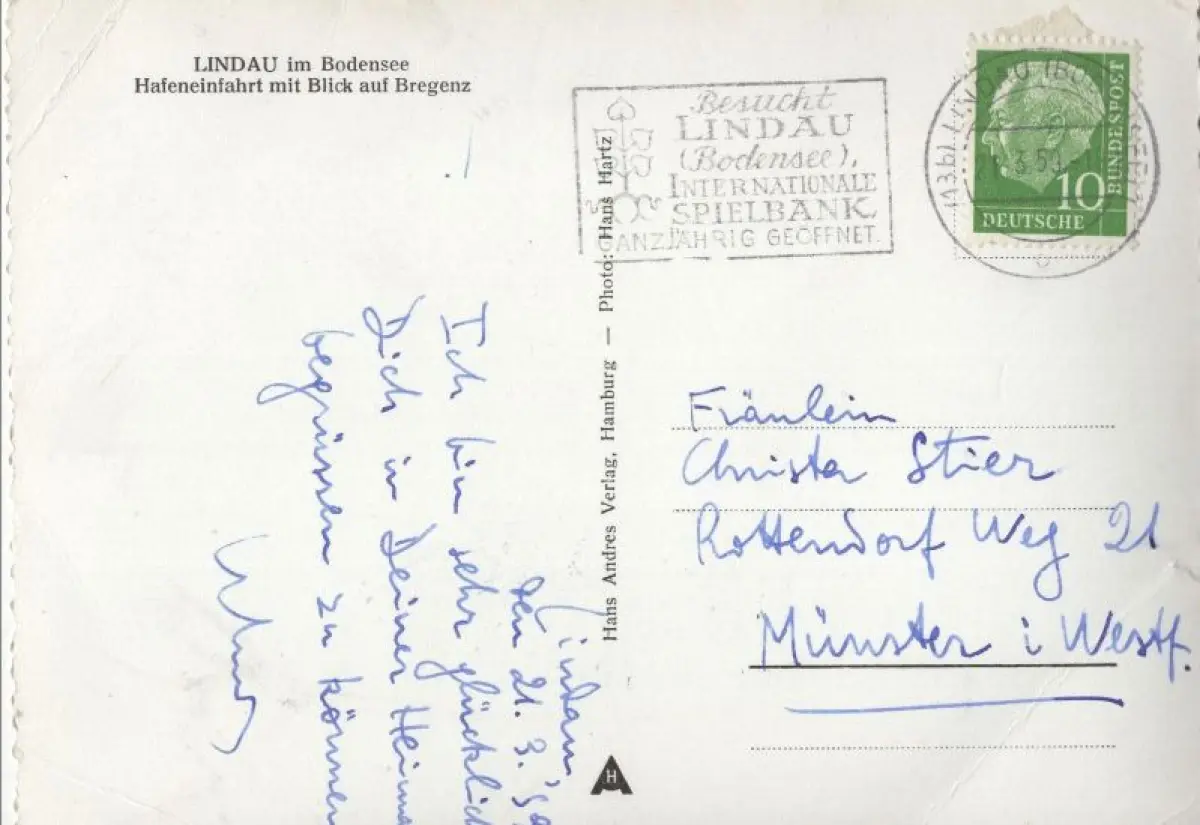 LINDAU im Bodensee
Hafeneinfahrt mit Blick auf Bregenz
Besucht
LINDAU
(Bodensee),
INTERNATIONALE
SPIELBANK
GANZJÄHRIG GEÖFFNET.
(13b) LINDAU (BO
3.59
BUNDESPOST
10
DEUTSCHE
Hans Andres Verlag, Hamburg — Photo: Hans Hartz
H
Lindau,
den 21. 3. 59
Ich bin sehr glücklich
Dich in Deiner Heima
begrüssen zu können
Fräulein
Christa Stier
Rottendorf Weg 21
Münster i Westf.